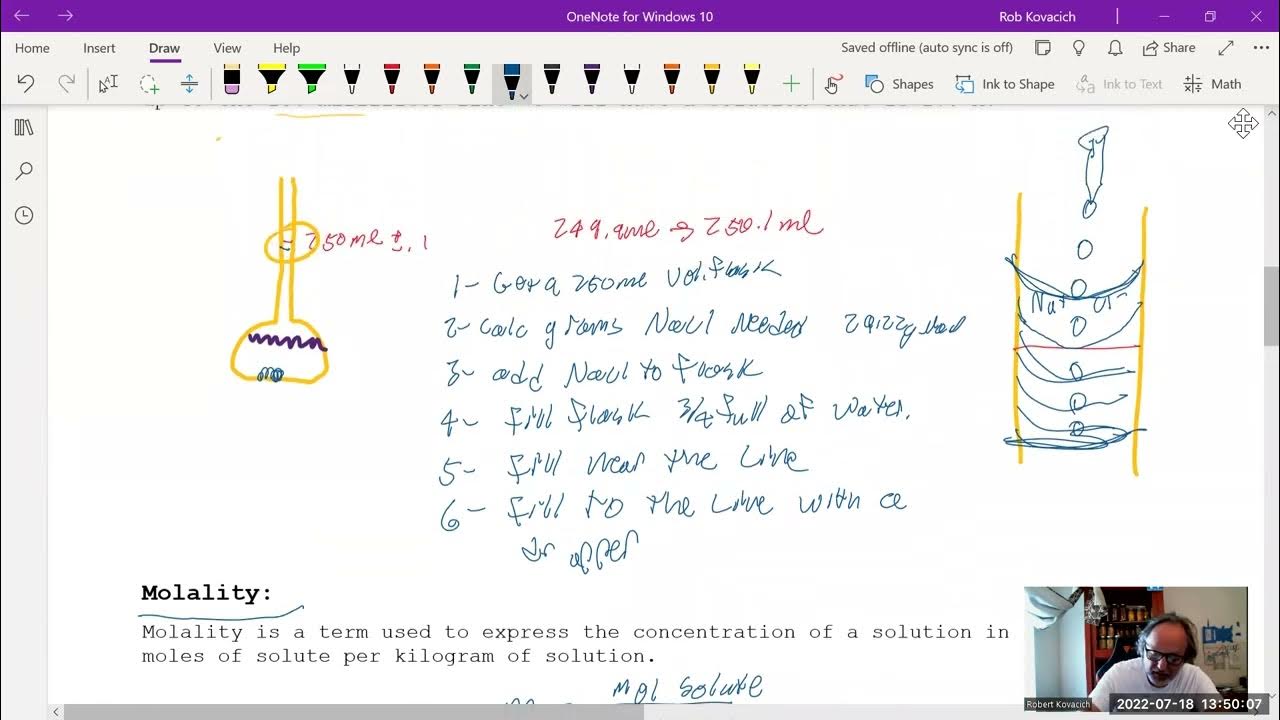 OneNote for Windows 10
Rob Kovacich
Home Insert Draw View Help
Saved offline (auto sync is off)
Share
Shapes Ink to Shape Ink to Text Math
250ml ± .1
249.9ml → 250.1 ml
1- Get a 250ml Vol. flask
2- calc grams NaCl Needed
3- add NaCl to flask
4- fill flask 3/4 full of water.
5- fill near the Line
6- fill to the Line with a
dropper
Na+ Cl-
Molality:
Molality is a term used to express the concentration of a solution in
moles of solute per kilogram of solution.
mol solute
Robert Kovacich
2022-07-18 13:50:07